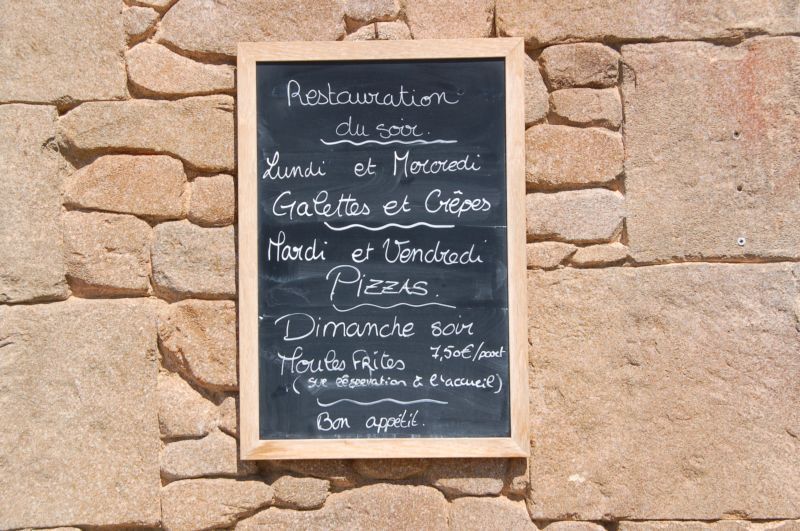 Restauration
du soir.
Lundi et Mercredi
Galettes et Crêpes
Mardi et Vendredi
PIZZAS.
Dimanche soir
Moules FRITES 7,50€/part
(sur réservation à l'accueil)
Bon appétit.